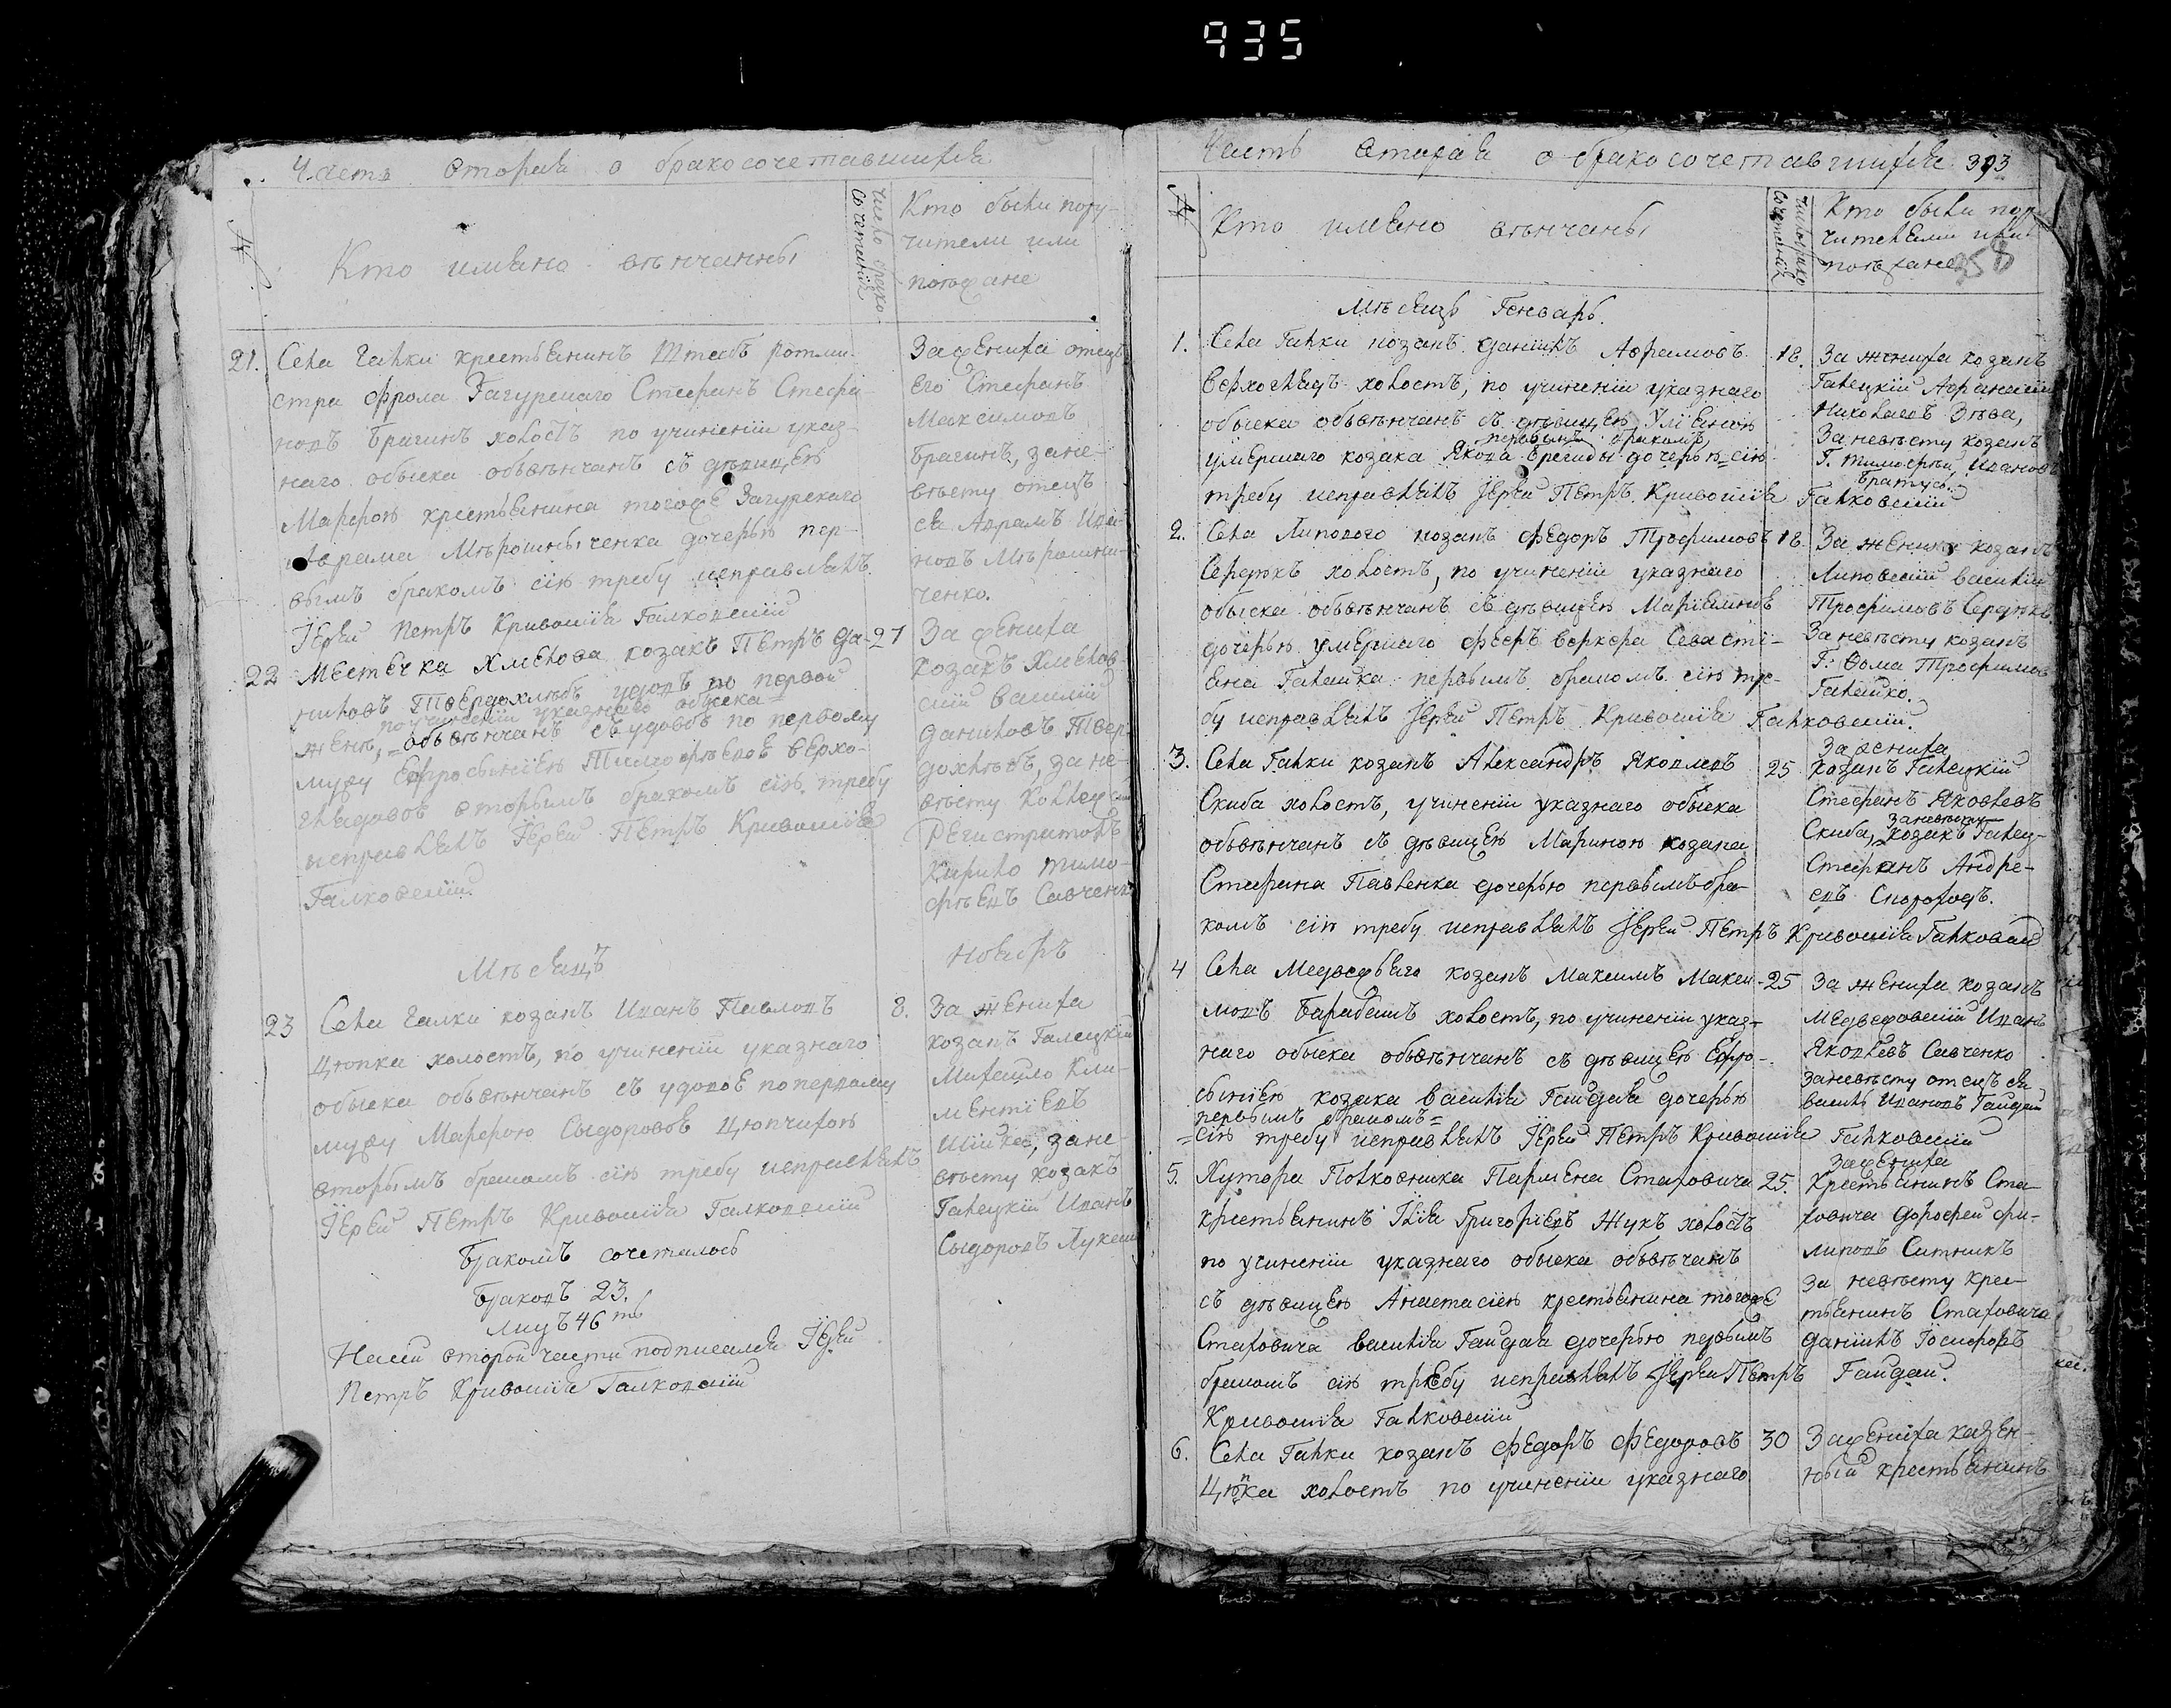 935
Часть вторая о бракосочетавшихся
№
Кто имѣно вѣнчанны
число брако-
сочетаній
Кто были пору-
чители или
поѣжане
21. Села Галки крестьянинъ Штабъ Ротми-
стра Фрола Загурскаго Стефанъ Стефа
новъ Брагинъ холостъ по учиненіи указ-
наго обыска обвѣнчанъ съ дѣвицею
Марфою крестьянина тогоже Загурскаго
Аврама Мѣрошныченка дочерью пер-
вымъ бракомъ сію требу исправлялъ
Іерей Петръ Кривошія Галковскій
За жениха отецъ
его Стефанъ
Максимовъ
Брагинъ, за не-
вѣсту отецъ
ея Аврамъ Ива-
новъ Мѣрошны-
ченко.
22 Местечка Хмелова козакъ Петръ Да- 27
ниловъ Твердохлѣбъ удовъ по первой
по учиненіи указнаго обыска
женѣ, = обвѣнчанъ съ удовоѣ по первому
мужу Ефросыніею Тимофѣевоѣ Верхо-
глядовоѣ вторымъ бракомъ сію требу
исправлялъ Іерей Петръ Кривошія
Галковскій
За жениха
козакъ Хмелов-
скій Василій
Даниловъ Твер-
дохлѣбъ, за не-
вѣсту Коллеж
Регистраторъ
Кирило Тимо-
фѣевъ Савченко
Мѣсяцъ Ноябръ
23 Села Галки козакъ Иванъ Павловъ 8.
Цюпка холостъ, по учиненіи указнаго
обыска обвѣнчанъ съ удовоѣ по первому
мужу Марфою Сыдоровоѣ Цюпчихою
вторымъ бракомъ сію требу исправлялъ
Іерей Петръ Кривошія Галковскій
За жениха
козакъ Галецкій
Михайло Кли-
ментіевъ
Шійка, за не-
вѣсту козакъ
Галецкій Иванъ
Сыдоровъ Лукаш
Бракомъ сочеталось
Браковъ 23.
Лицъ 46 ть
Къ сей второй части подписался Іерей
Петръ Кривошія Галковскій
Часть вторая о бракосочетавшихся 393
№
Кто имѣно вѣнчаны
число брако
сочетаній
Кто были пору
чителями или
поѣжане
358
Мѣсяцъ Генварь.
1. Села Галки козакъ Даніилъ Аврамовъ 18.
Верхоглядъ холостъ, по учиненіи указнаго
обыска обвѣнчанъ съ дѣвицею Уліяною
первымъ бракомъ,
умершаго козака Якова дочерью = сію
требу исправлялъ Іерей Петръ Кривошія Галковскій
За жениха козакъ
Галецкій Афанасій
Николаевъ Зѣва,
За невѣсту козакъ
Г. Тимофѣй Ивановъ
Братусь.
2. Села Липового козакъ Федоръ Трофимовъ 18.
Сердюкъ холостъ, по учиненіи указнаго
обыска обвѣнчанъ съ дѣвицею Маріамноѣ
дочерью умершаго феервѣркера Севасті-
яна Галашка первымъ бракомъ сію тре-
бу исправлялъ Іерей Петръ Кривошія Галковскій.
За жениха козакъ
Липовскій Василій
Трофимовъ Сердюкъ
За невѣсту козакъ
Г: Фома Трофимовъ
Галашко.
3. Села Галки козакъ Александръ Яковлевъ 25
Скиба холостъ, учиненіи указнаго обыска
обвѣнчанъ съ дѣвицею Мариною козака
Стефана Павленка дочерью первымъ бра-
комъ сію требу исправлялъ Іерей Петръ Кривошія Галковскій
За жениха
козакъ Галецкій
Стефанъ Яковлевъ
за невѣсту
Скиба, козакъ Галец-
Стефанъ Андре-
евъ Скороходъ.
4 Села Медвежьяго козакъ Максимъ Макси- 25
мовъ Барабашъ холостъ, по учиненіи указ-
наго обыска обвѣнчанъ съ дѣвицею Ефро-
сыніею козака Василія Гайдая дочерью
первымъ бракомъ =
= сію требу исправлялъ Іерей Петръ Кривошія Галковскій
За жениха козакъ
Медвежовскій Иванъ
Яковлевъ Савченко
За невѣсту отецъ ея
Василь Ивановъ Гайдай
5. Хутора Полковника Пармена Стаховича 25.
крестьянинъ Ілія Григоріевъ Жукъ холостъ
по учиненіи указнаго обыска обвѣнчанъ
съ дѣвицею Анастасіею крестьянина тогоже
Стаховича Василія Гайдая дочерью первымъ
бракомъ сію требу исправлялъ Іерей Петръ
Кривошія Галковскій
За жениха
крестьянинъ Ста-
ховича Дорофей Фи-
липовъ Ситникъ
За невѣсту крес-
тьянинъ Стаховича
Даніилъ Іосифовъ
Гайдай.
6. Села Галки козакъ Федоръ Федоровъ 30
Цюпка холостъ по учиненіи указнаго
За жениха казен-
ный крестьянинъ